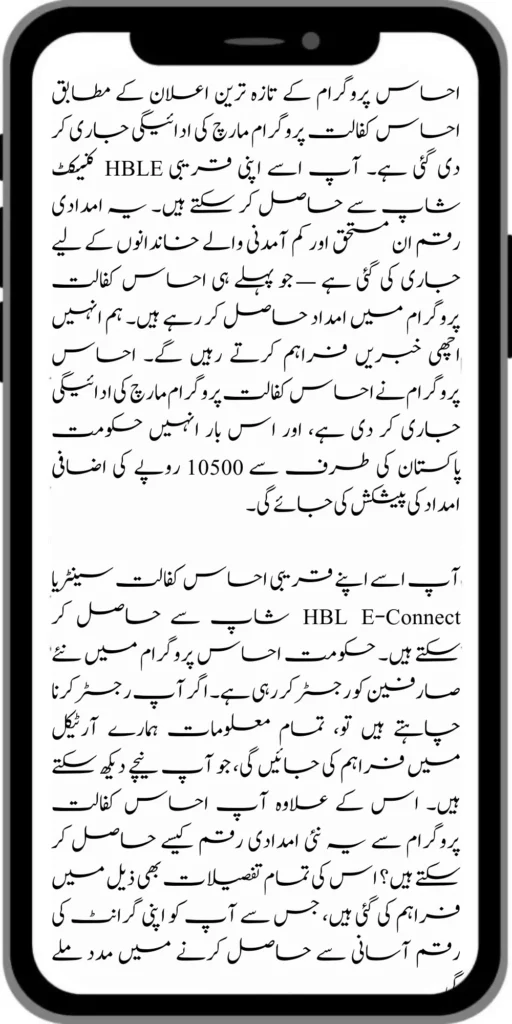 احساس پروگرام کے تازہ ترین اعلان کے مطابق
احساس کفالت پروگرام مارچ کی ادائیگی جاری کر
دی گئی ہے۔ آپ اسے اپنی قریبی HBLE کنیکٹ
شاپ سے حاصل کر سکتے ہیں۔ یہ امدادی
رقم ان مستحق اور کم آمدنی والے خاندانوں کے لیے
جاری کی گئی ہے — جو پہلے ہی احساس کفالت
پروگرام میں امداد حاصل کر رہے ہیں۔ ہم انہیں
اچھی خبریں فراہم کرتے رہیں گے۔ احساس
پروگرام نے احساس کفالت پروگرام مارچ کی ادائیگی
جاری کر دی ہے، اور اس بار انہیں حکومت
پاکستان کی طرف سے 10500 روپے کی اضافی
امداد کی پیشکش کی جائے گی۔
آپ اسے اپنے قریبی احساس کفالت سینٹر یا
HBL E-Connect شاپ سے حاصل کر
سکتے ہیں۔ حکومت احساس پروگرام میں نئے
صارفین کو رجسٹر کر رہی ہے۔ اگر آپ رجسٹر کرنا
چاہتے ہیں تو، تمام معلومات ہمارے آرٹیکل
میں فراہم کی جائیں گی، جو آپ نیچے دیکھ سکتے
ہیں۔ اس کے علاوہ آپ احساس کفالت
پروگرام سے یہ نئی امدادی رقم کیسے حاصل کر
سکتے ہیں؟ اس کی تمام تفصیلات بھی ذیل میں
فراہم کی گئی ہیں، جس سے آپ کو اپنی گرانٹ کی
رقم آسانی سے حاصل کرنے میں مدد ملے